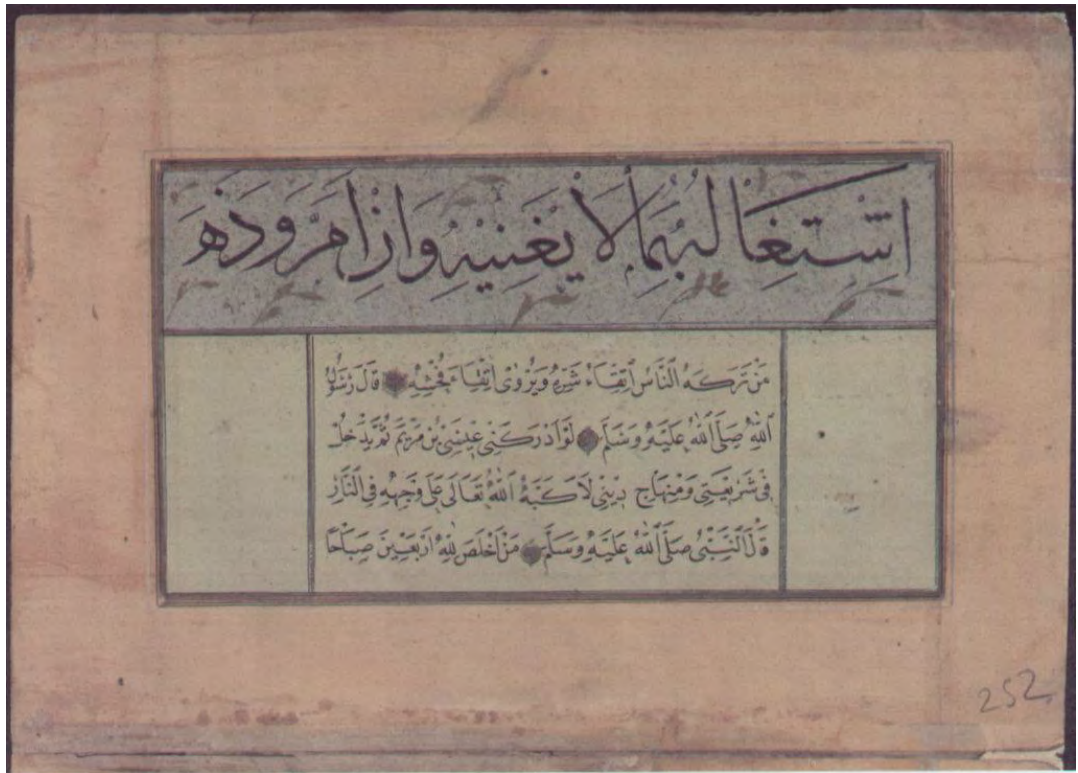 اشتغاله بما لا يغنيه وان امرو ذه
من تركه الناس اتقاء شره ويروى اتقاء فحشه قال رسول
الله صلى الله عليه وسلم لو ادركنى عيسى بن مريم ثم يدخل
فى شريعتى ومنهاج دينى لاكبه الله تعالى على وجهه فى النار
قال النبى صلى الله عليه وسلم من اخلص لله اربعين صباحا
252